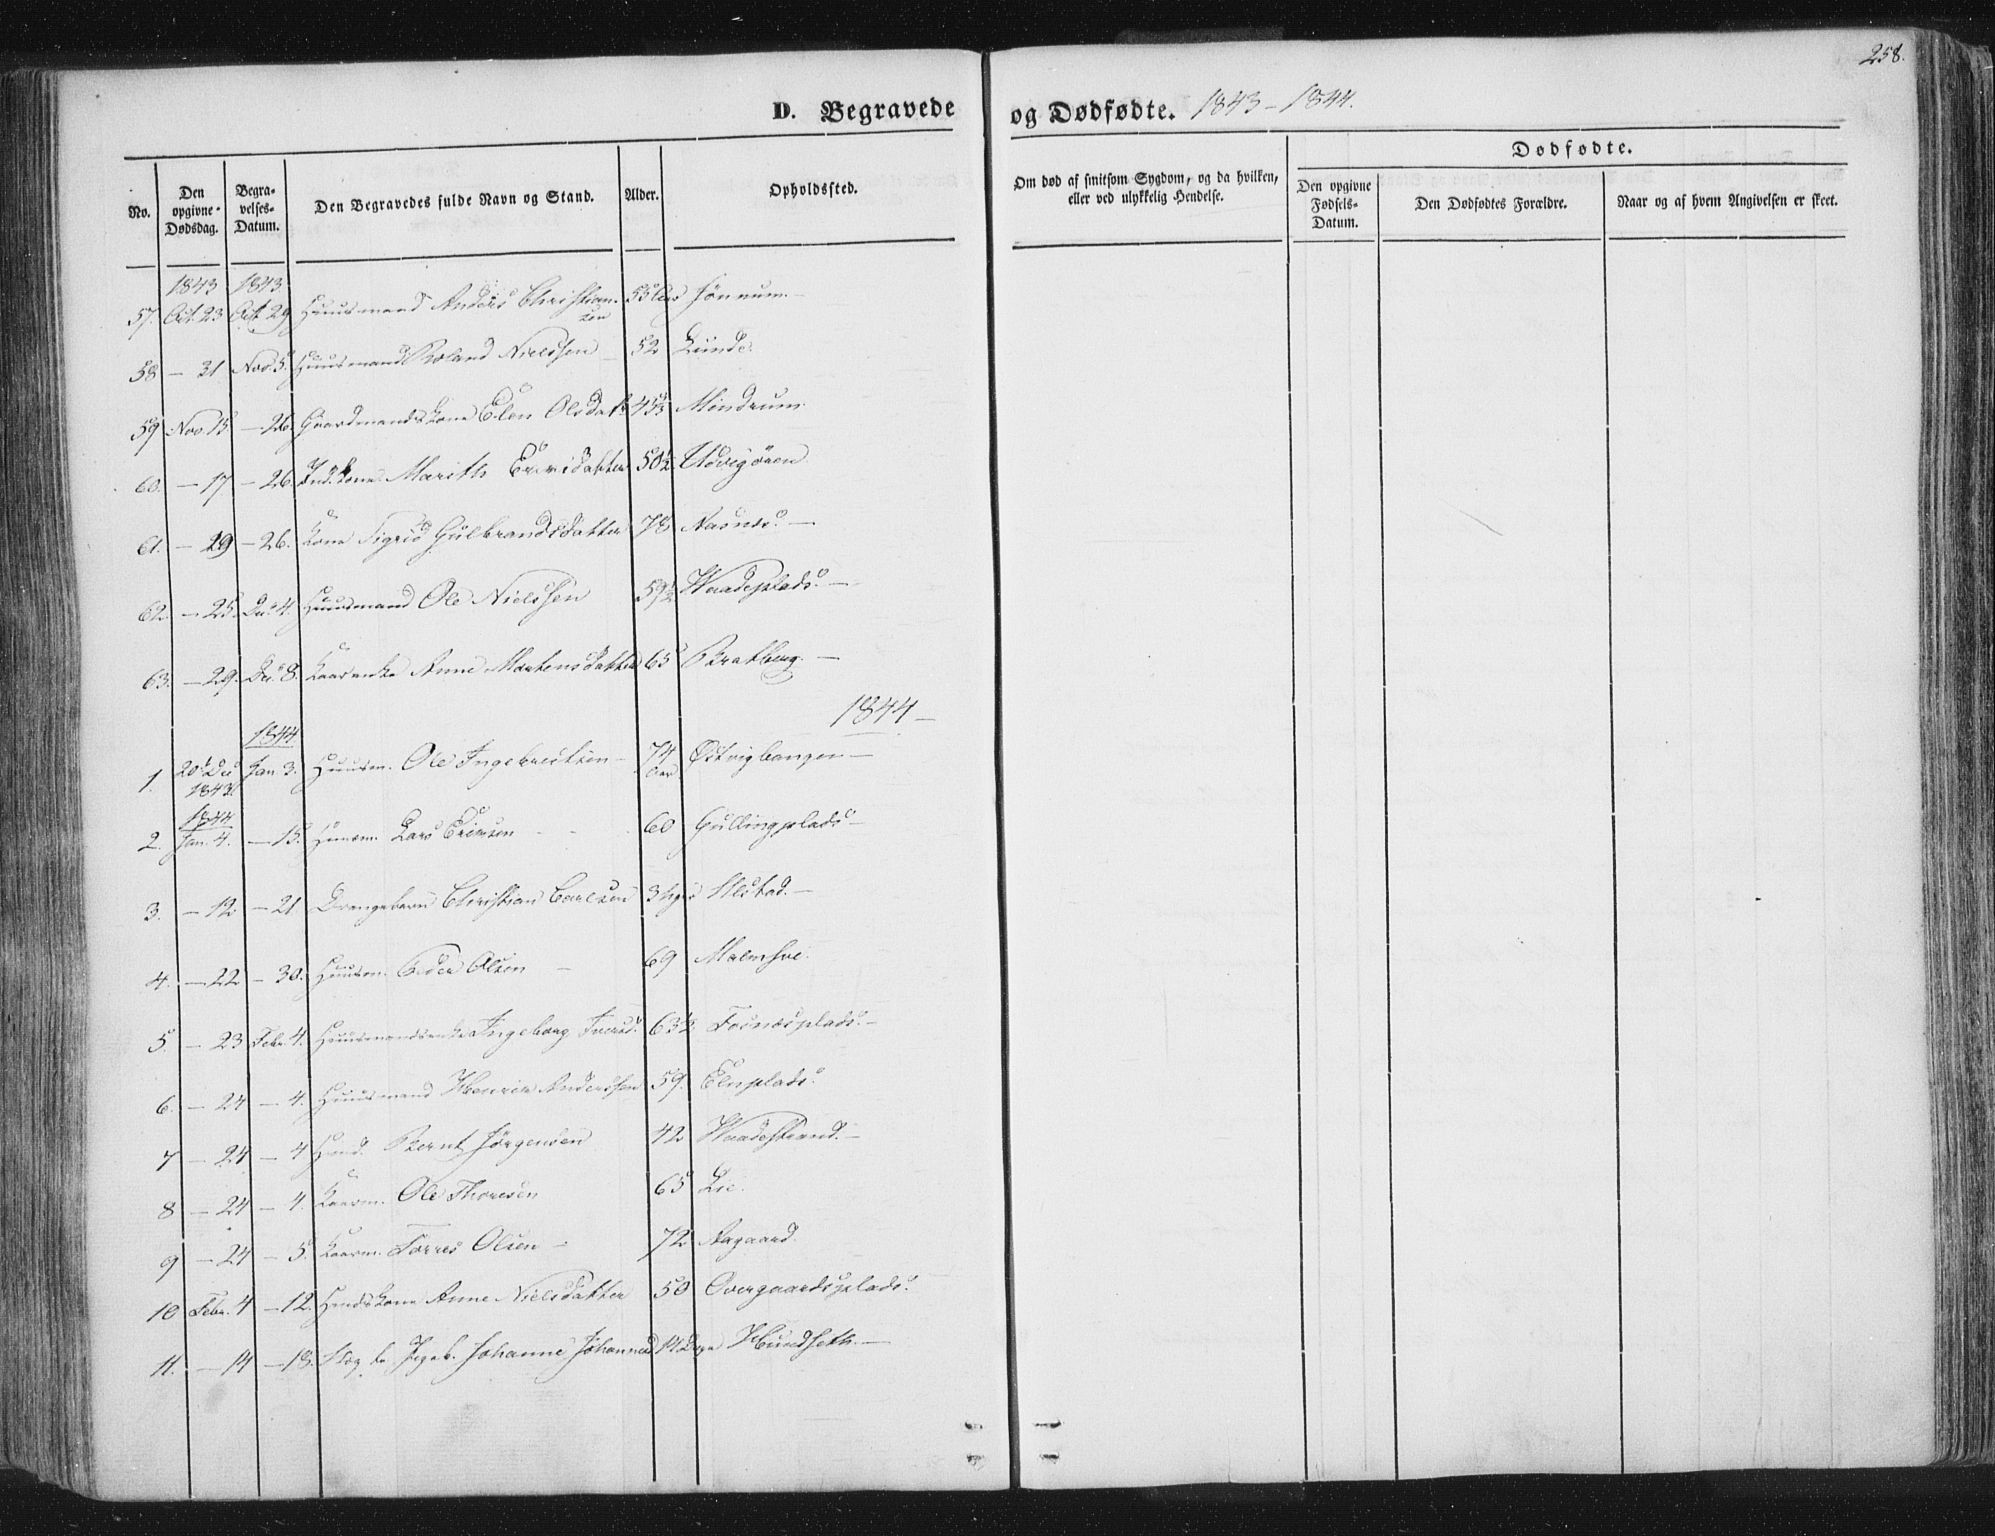 258.
D. Begravede og Dødfødte. 1843-1844.
No.
Den opgivne Dødsdag.
Begravelses-Datum.
Den Begravedes fulde Navn og Stand.
Alder.
Opholdssted.
Om død af smitsom Sygdom, og da hvilken, eller ved ulykkelig Hendelse.
Dødfødte.
Den opgivne Fødsels-Datum.
Den Dødfødtes Forældre.
Naar og af hvem Angivelsen er skeet.
1843 1843
57. Oct. 23 Oct 29 Huusmand Anders Christiansen 55 Aar
58 - 31 Nov. 5. Huusmand Roland Nielssen 52 Lunde.
59 Nov. 15 - 26. Gaardmandskone Elen Olsdatr Mindrum.
60. - 17 - 26. Marith 50½
61. - 29 - 26. Kone Sigrid Gulbrandsdatter 78 Aasnes. -
62. - 25. Dec. 4. Huusmand Ole Nielssen 59½ Waadeplads. -
63. - 29. Dec. 8. Kaarenke Anne Mortensdatter 65 Bratberg. -
1844 -
1844
1. 20 Dec 1843. Jan. 3. Huusm. Ole Ingebrigtsen - 74 Aar Østvigbangen -
1844
2. Jan. 4. - 15. Huusm. Lars 60 Gullingplads -
3. - 12 - 21 Drengebarn Christian Carlsen 3 Alstad. -
4. - 22 - 30. Huusm. Peder Olsen - 69 Malmhoe.
5. - 23 Febr. 4. Huusmandsenke Ingeborg Iversd. 63½ Fosnæsplads. -
6. - 24 - 4. Huusmand Henrik Anderssen 59. Elnplads.
7 - 24 - 4 Bernt Jørgensen 42 Waadestrand. -
8 - 24 - 4. Kaarm. Ole Thoresen 65 Lie.
9 - 24 - 5. Kaarm. Torres Olsen - 72 Aagaard.
10 Febr. 4 - 12. Anne Nielsdatter 50 Overgaardsplads.
11. - 14 - 18. Pigeb. Johanne Johannesd 14 Dage Hundseth. -